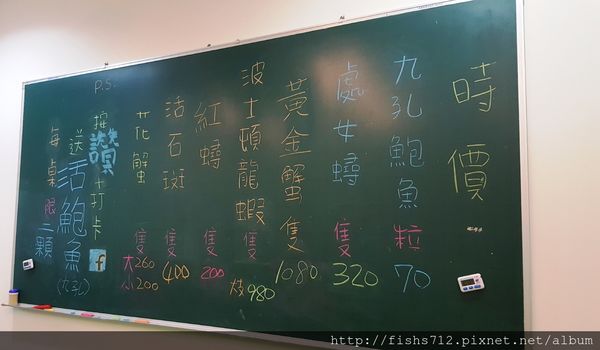 時價
九孔鮑魚 粒 70
處女蟳 隻 320
黃金蟹 隻 1080
波士頓龍蝦 隻 980
紅蟳 隻 200
活石斑 隻 400
花蟹 隻 大260 小200
P.S.
按讚打卡 f
送活鮑魚(九孔)
每桌限二顆
http://fishs712.pixnet.net/album